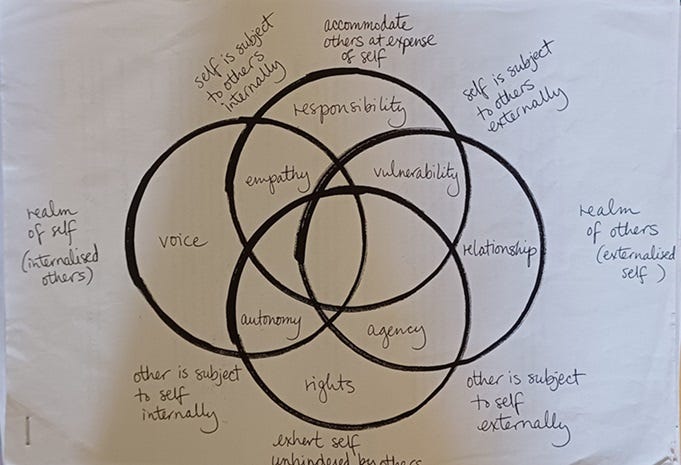 accommodate
others at expense
of self
self is subject
to others
internally
self is subject
to others
externally
responsibility
empathy
vulnerability
realm
of self
(internalised
others)
voice
relationship
realm
of others
(externalised
self)
autonomy
agency
other is subject
to self
internally
rights
other is subject
to self
externally
exhert self
unhindered by others